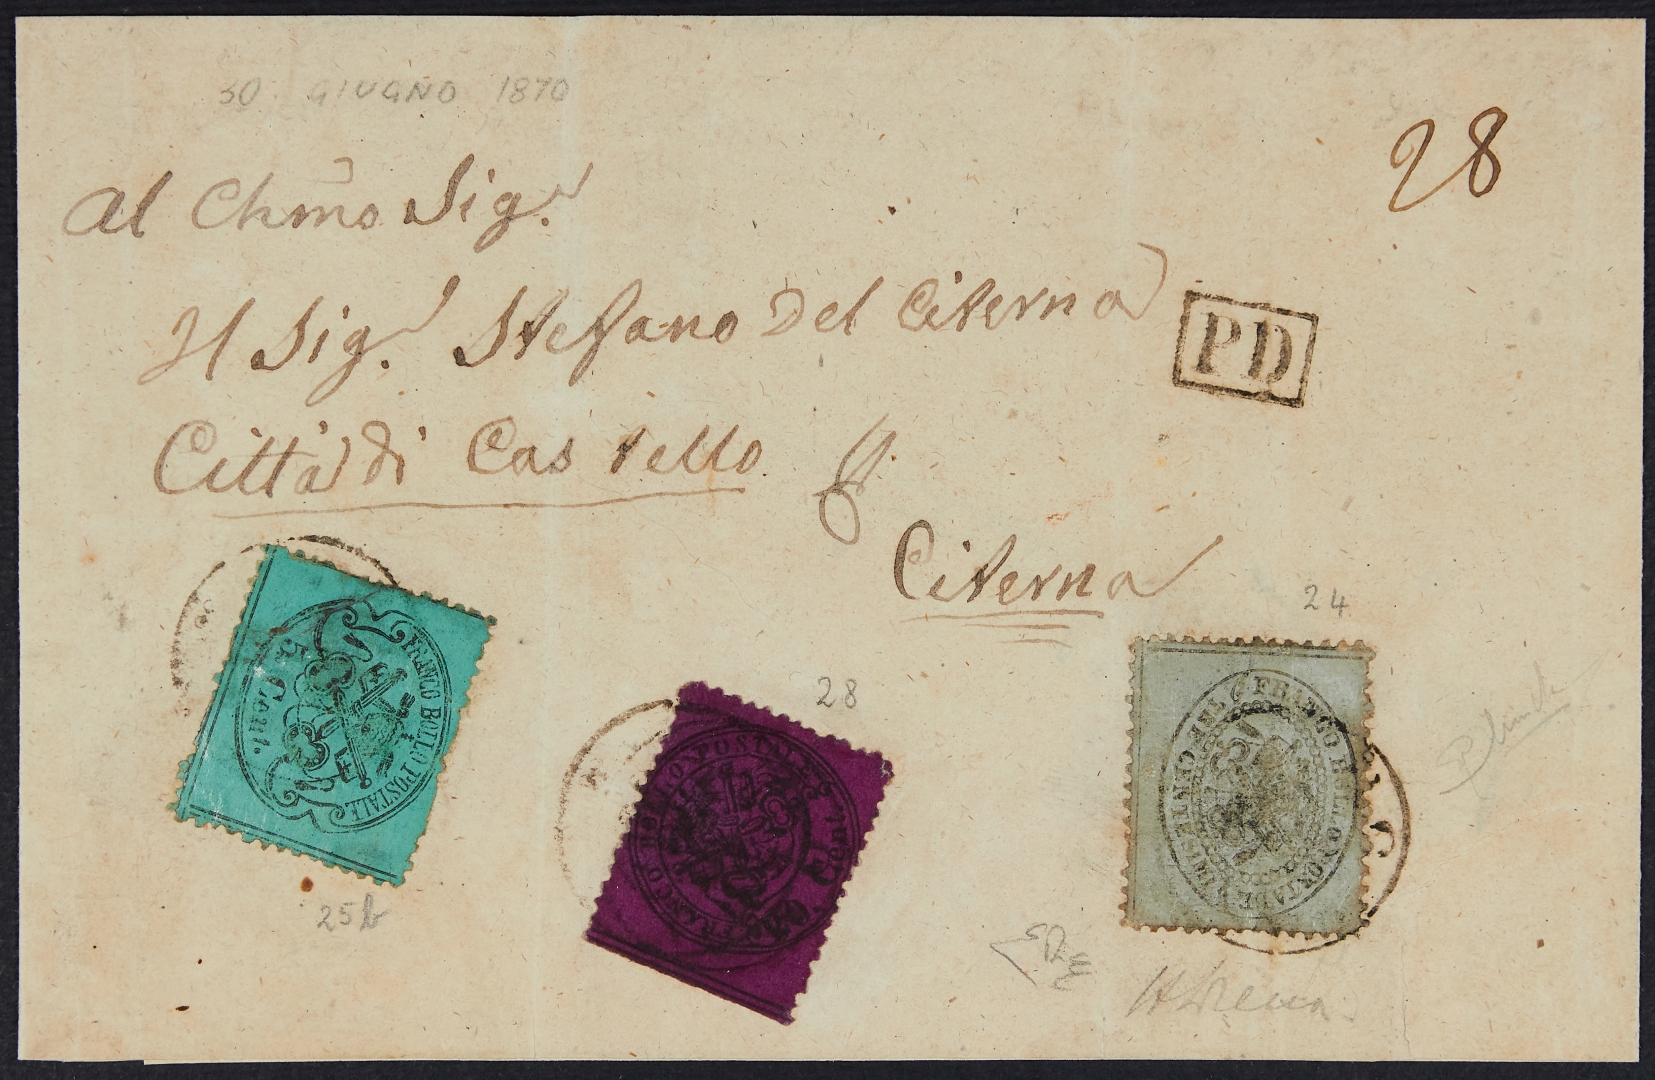 30 GIUGNO 1870
28
Al Chmo Sig.r
Il Sig.r Stefano Del Citerna
PD
Città di Castello
Citerna
24
28
FRANCO BOLLO POSTALE
5 Cent.
FRANCO BOLLO POSTALE
20 Cent.
FRANCO BOLLO POSTALE
CENTESIMO
25b